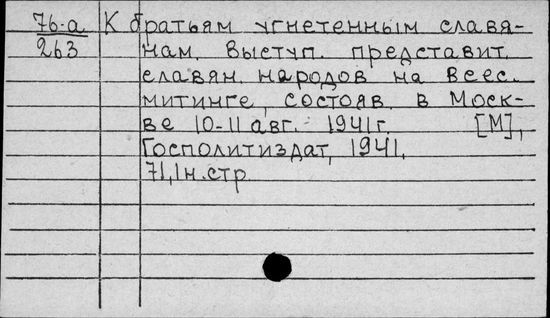 76-а К братьям угнетенным славя-
263 нам. Выступ. представит.
славян. народов на всес.
митинге, состояв. в Моск-
ве 10-11 авг. 1941 г. [М],
Госполитиздат, 1941.
71,1 н.стр